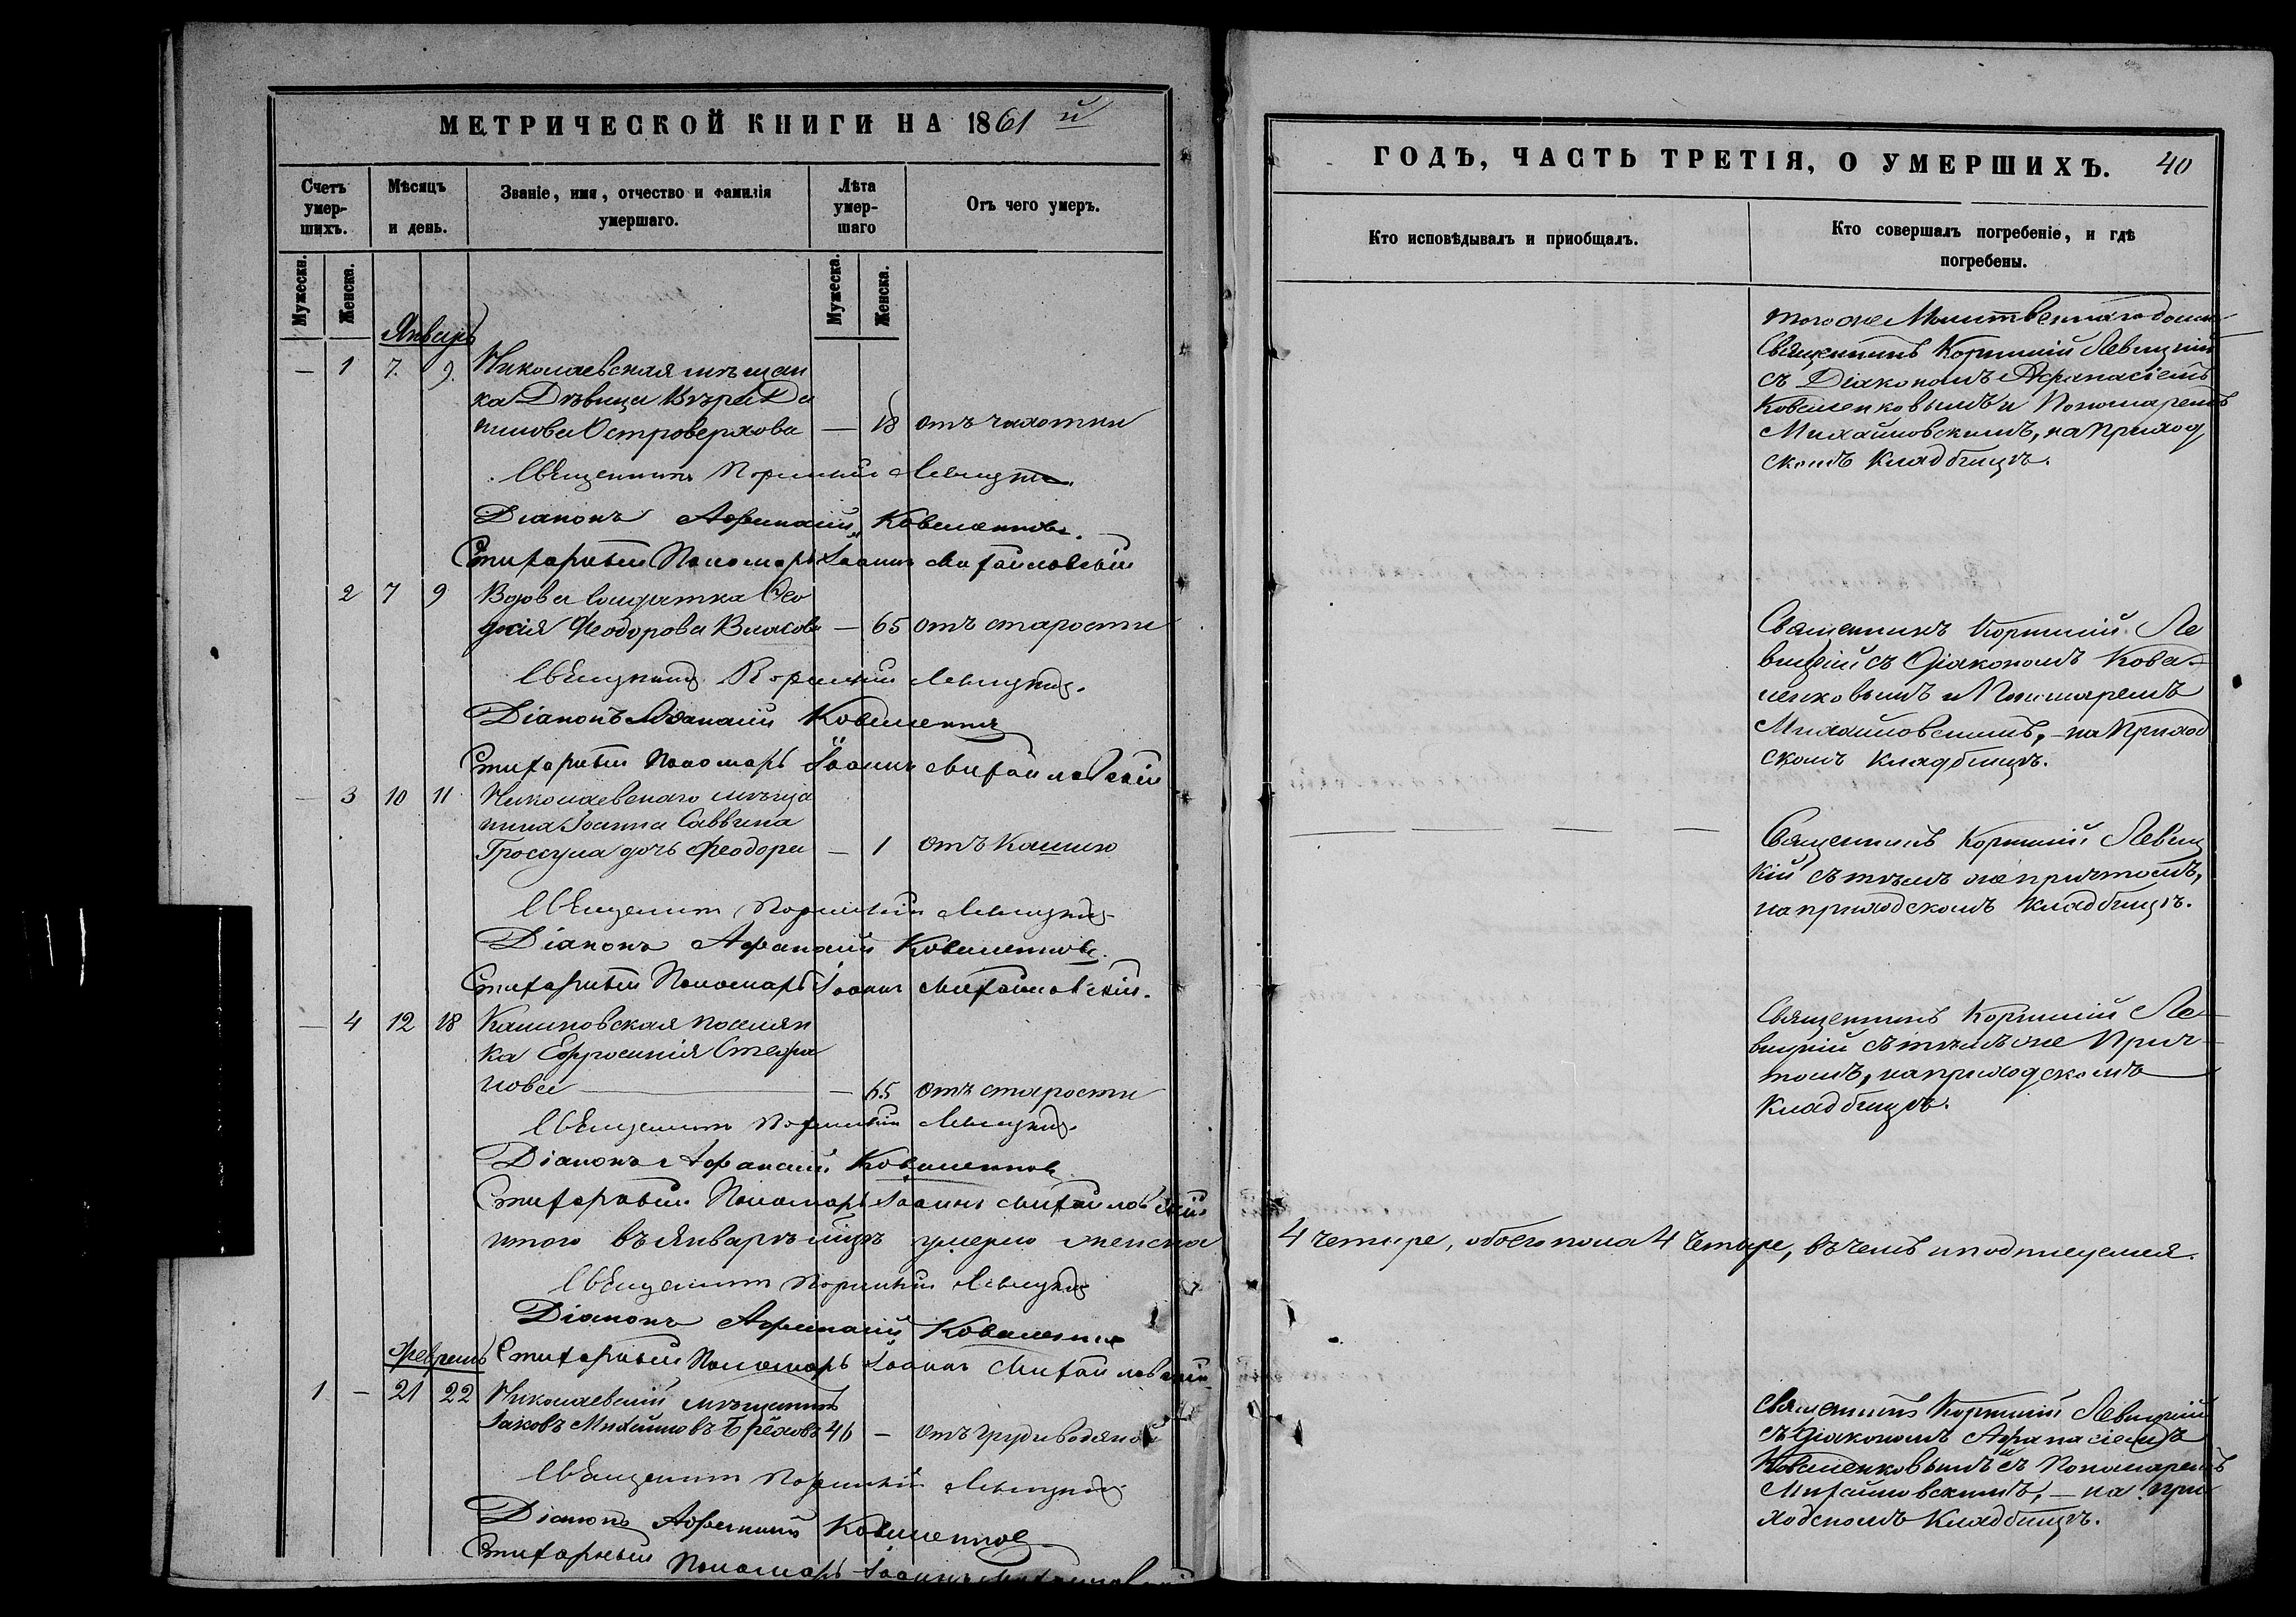 МЕТРИЧЕСКОЙ КНИГИ НА 1861 й
Счетъ умер-шихъ.
Мѣсяцъ и день.
Званіе, имя, отчество и фамилія умершаго.
Лѣта умер-шаго
Отъ чего умеръ.
Мужеска.
Женска.
Мужеска.
Женска.
Январь
— 1 7. 9. Николаевская мѣщан
ка Дѣвица Вѣра Да
нилова Островерхова — 18 отъ чахотки
Священникъ Корнилій Левицкій
Діаконъ Афанасій Коваленковъ.
Стихарный Пономарь Іоаннъ Михайловскій
2 7 9 Вдова Солдатка Ев
докія Феодорова Власова — 65 отъ старости
Священникъ Корнилій Левицкій.
Діаконъ Афанасій Коваленковъ
Стихарный Пономарь Іоаннъ Михайловскій
— 3 10 11 Николаевскаго мѣща
нина Іоанна Саввина
Гроссула дочь Феодора — 1 отъ кашлю
Священникъ Корнилій Левицкій
Діаконъ Афанасій Коваленковъ.
Стихарный Пономарь Іоаннъ Михайловскій.
— 4 12 18 Калиновская поселян
ка Ефросинія Стефа
нова — 65 отъ старости
Священникъ Корнилій Левицкій.
Діаконъ Афанасій Коваленковъ
Стихарный Пономарь Іоаннъ Михайловскій
итого въ Январѣ мцѣ умерло женска
Священникъ Корнилій Левицкій
Діаконъ Афанасій Коваленковъ
Февраль
Стихарный Пономарь Іоаннъ Михайловскій
1 — 21 22 Николаевскій мѣщанинъ
Іаковъ Михайловъ 46 — отъ груди водяной
Священникъ Корнилій Левицкій
Діаконъ Афанасій Коваленковъ
Стихарный Пономарь Іоаннъ Михайловскій
ГОДЪ, ЧАСТЬ ТРЕТІЯ, О УМЕРШИХЪ. 40
Кто исповѣдывалъ и пріобщалъ.
Кто совершалъ погребеніе, и гдѣ погребены.
того же Молитвеннаго дома
Священникъ Корнилій Левицкій
съ Діакономъ Афанасіемъ
Коваленковымъ и Пономаремъ
Михайловскимъ, на приход
скомъ кладбищѣ.
Священникъ Корнилій Ле
вицкій съ Діакономъ Кова-
ленковымъ и Пономаремъ
Михайловскимъ, — на приход
скомъ кладбищѣ.
Священникъ Корнилій Левиц
кій съ тѣмъ же причтомъ,
на приходскомъ кладбищѣ.
Священникъ Корнилій Ле-
вицкій съ тѣмъ же Прич-
томъ, на приходскомъ
кладбищѣ.
4 четыре, обоего пола 4 четыре, въ чемъ и подпишемся.
Священникъ Корнилій Левицкій
съ Діакономъ Афанасіемъ
Коваленковымъ съ Пономаремъ
Михайловскимъ, — на при
ходскомъ кладбищѣ.